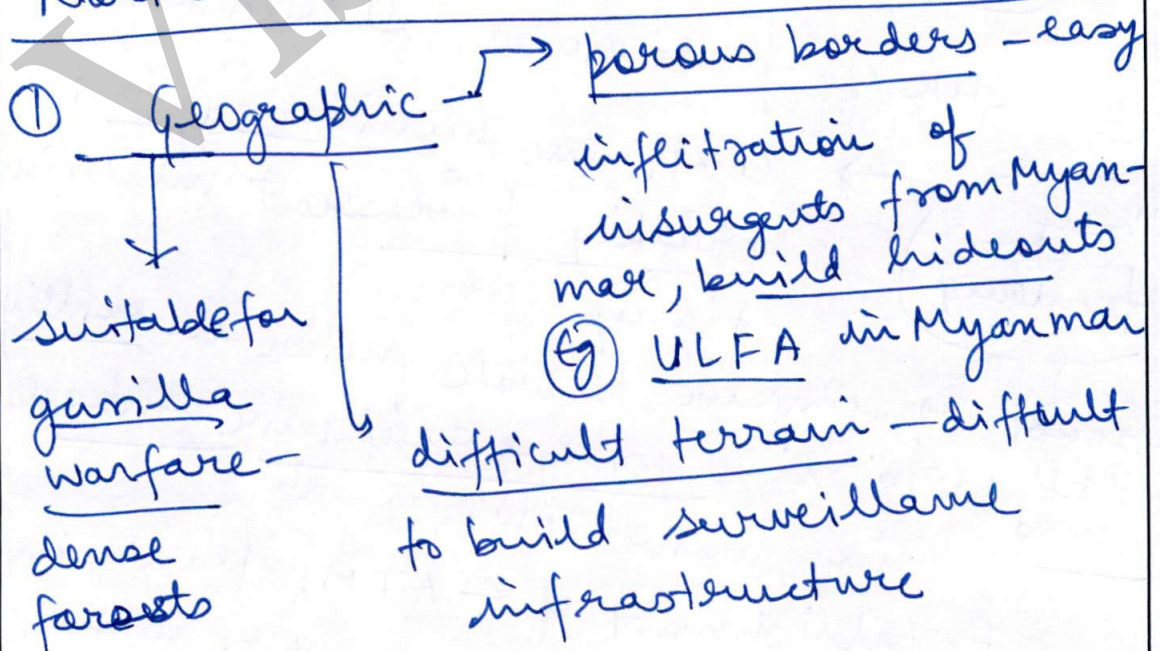 ① Geographic → porous borders - easy
inflitration of
insurgents from Myan-
mar, build hideouts
Eg ULFA in Myanmar
suitable for
gurilla
warfare -
dense
forests
difficult terrain - difficult
to build surveillance
infrastructure